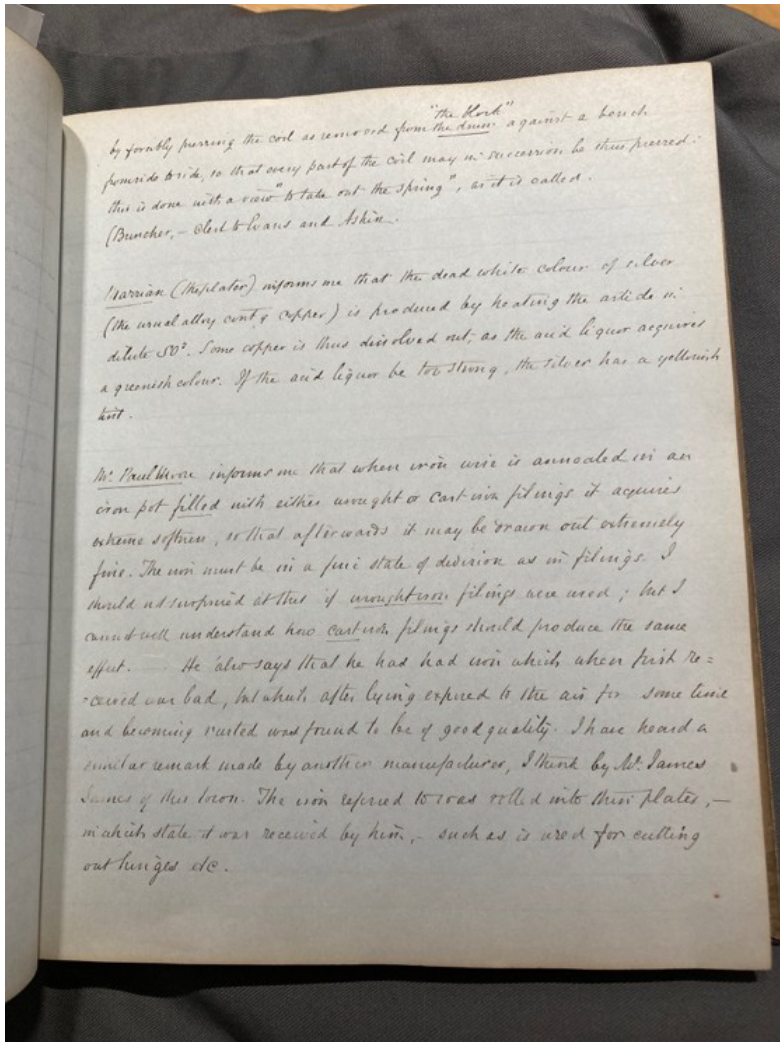 "the block"
by forcibly pressing the coil as removed from the drum against a bench
from side to side, so that every part of the coil may in succession be thus pressed:
this is done with a view "to take out the spring", as it is called.
(Buncher, – clerk to Evans and Askin.
(the plater) informs me that the dead white colour of silver
(the usual alloy contg copper) is produced by heating the article in
dilute SO³. Some copper is thus dissolved out, as the acid liquor acquires
a greenish colour. If the acid liquor be too strong, the silver has a yellowish
tint.
Mr. Paul Moore informs me that when iron wire is annealed in an
iron pot filled with either wrought or cast iron filings it acquires
extreme softness, so that afterwards it may be drawn out extremely
fine. The iron must be in a fine state of division as in filings. I
should not surprised at this if wrought iron filings were used; but I
cannot well understand how cast iron filings should produce the same
effect. — He also says that he has had iron which when first re=
=ceived was bad, but which after lying exposed to the air for some time
and becoming rusted was found to be of good quality. I have heard a
similar remark made by another manufacturer, I think by Mr. James
James of this town. The iron referred to was rolled into thin plates, –
in which state it was received by him, – such as is used for cutting
out hinges etc.